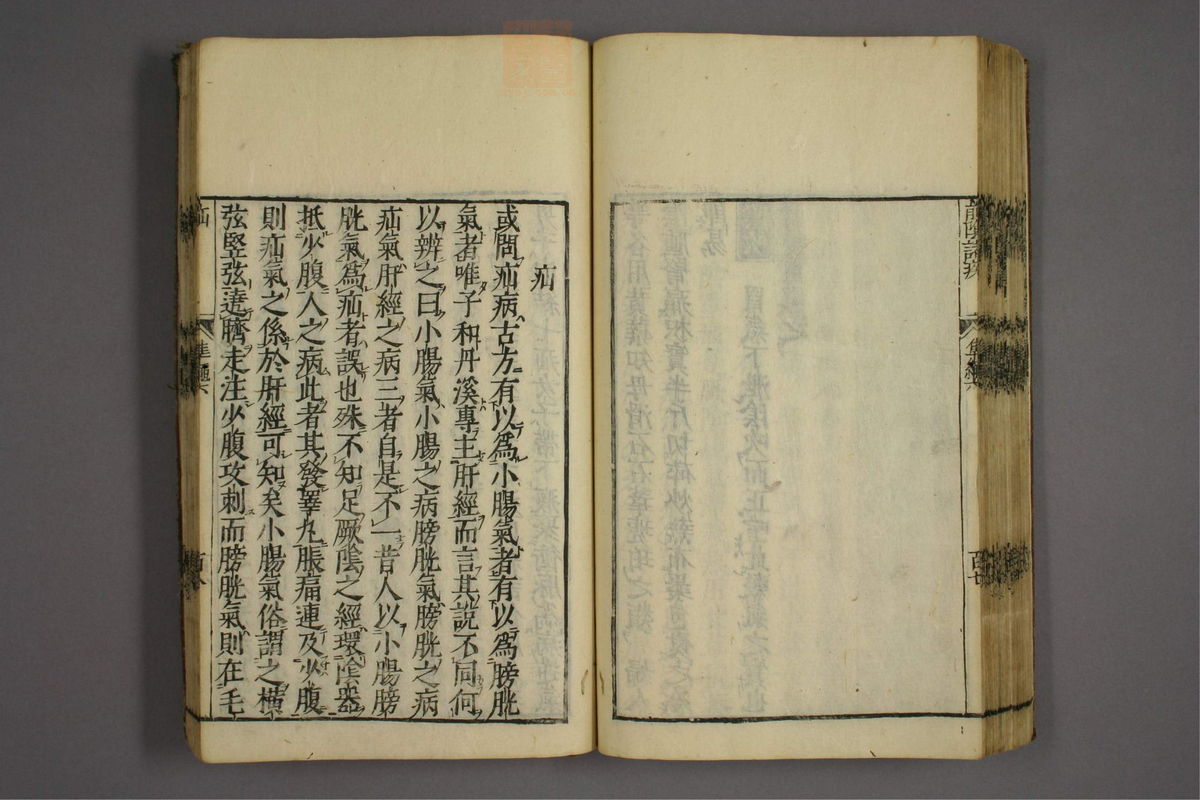 疝
或問疝病古方有以爲小腸氣者有以爲膀胱
氣者唯子和丹溪專主肝經而言其說不同何
以辨之曰小腸氣小腸之病膀胱氣膀胱之病
疝氣肝經之病三者自是不一昔人以小腸膀
胱氣爲疝者誤也殊不知足厥陰之經環陰器
抵少腹人之病此者其發睪丸脹痛連及少腹
則疝氣之係於肝經可知矣小腸氣俗謂之橫
弦竪弦遶臍走注少腹攻刺而膀胱氣則在毛
疝